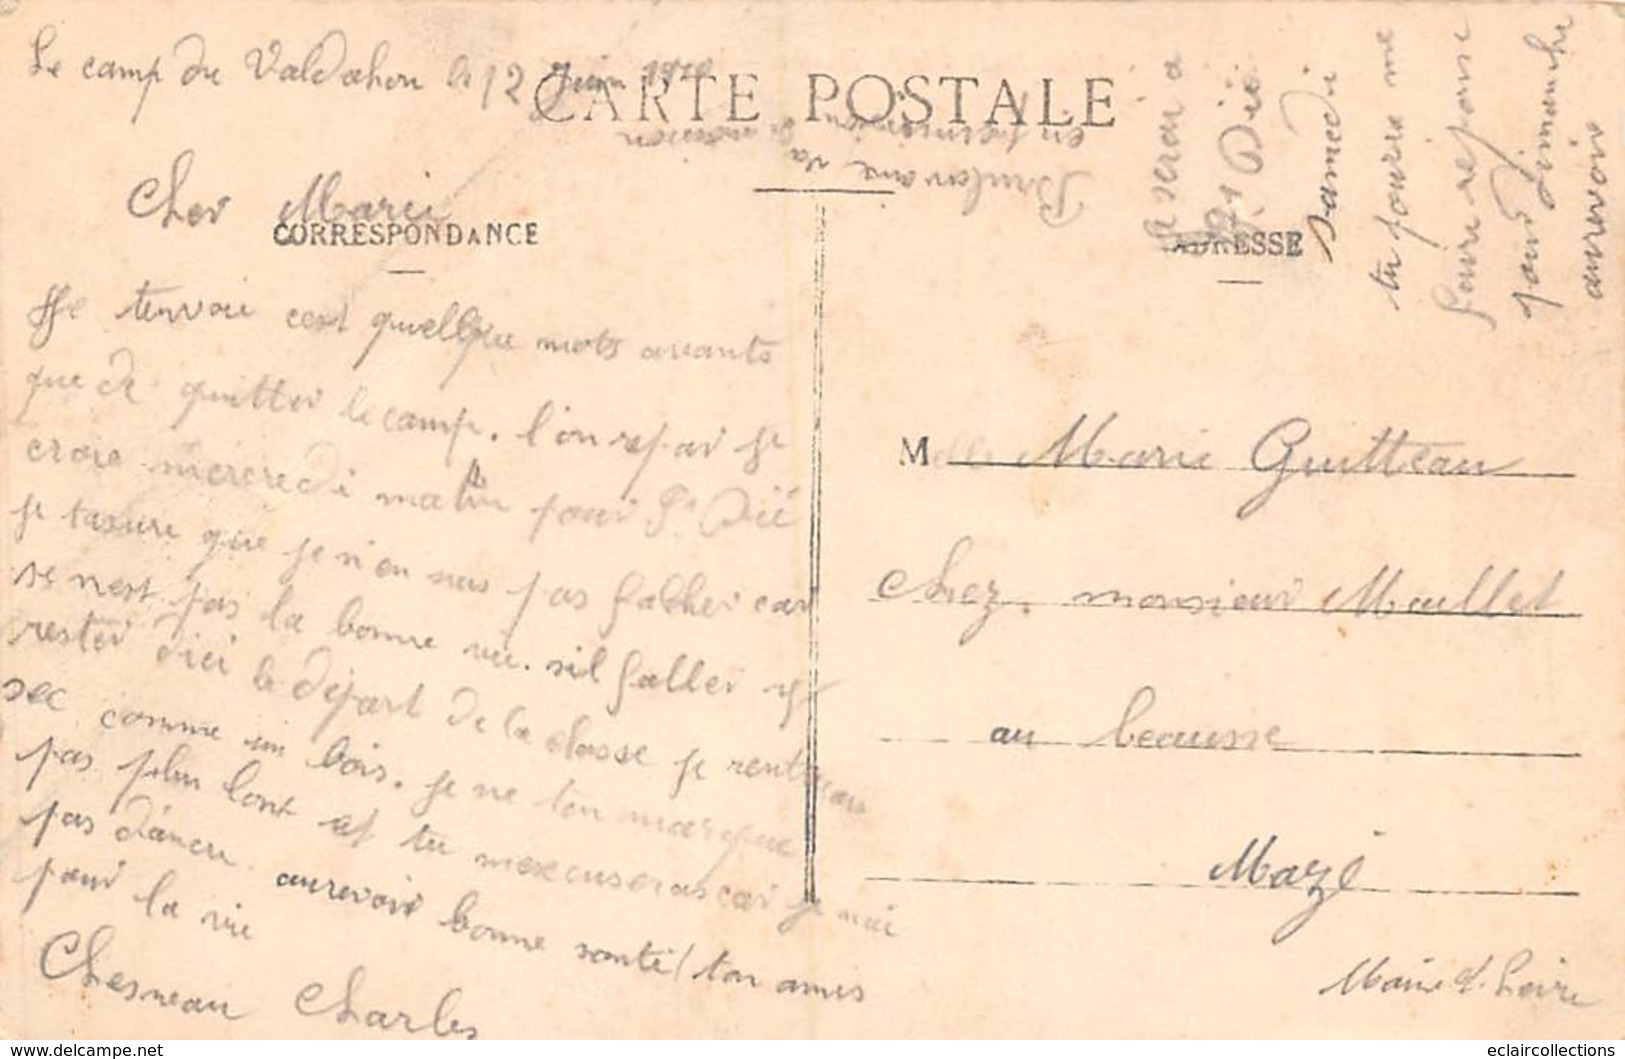 Le camp du Valdahon le 12 Juin
CARTE POSTALE
Cher Marie
CORRESPONDANCE
Je tenvoie cest quellque mots avants
que de quitter le camp. l'on repar je
croie mercredi matin pour St Dié
je tassure que je n'en suis pas facher car
se nest pas la bonne vie. sil faller y
rester dici le départ de la classe je rentrerau
sec comme un bois. je ne ten marque
pas plus lont et tu mexcuseras car je nai
pas dancre. aurevoir bonne santé / ton amis
pour la vie
Chesneau Charles
Brulavoine va
en permission
je serai a
St Dié
samedi
tu pourra me
faire reponse
pour dimanche
aurevoir
ADRESSE
Melle Marie Guitteau
chez. monsieur Maillet
au beausse
Mazé
Maine et Loire
www.delcampe.net
eclaircollections